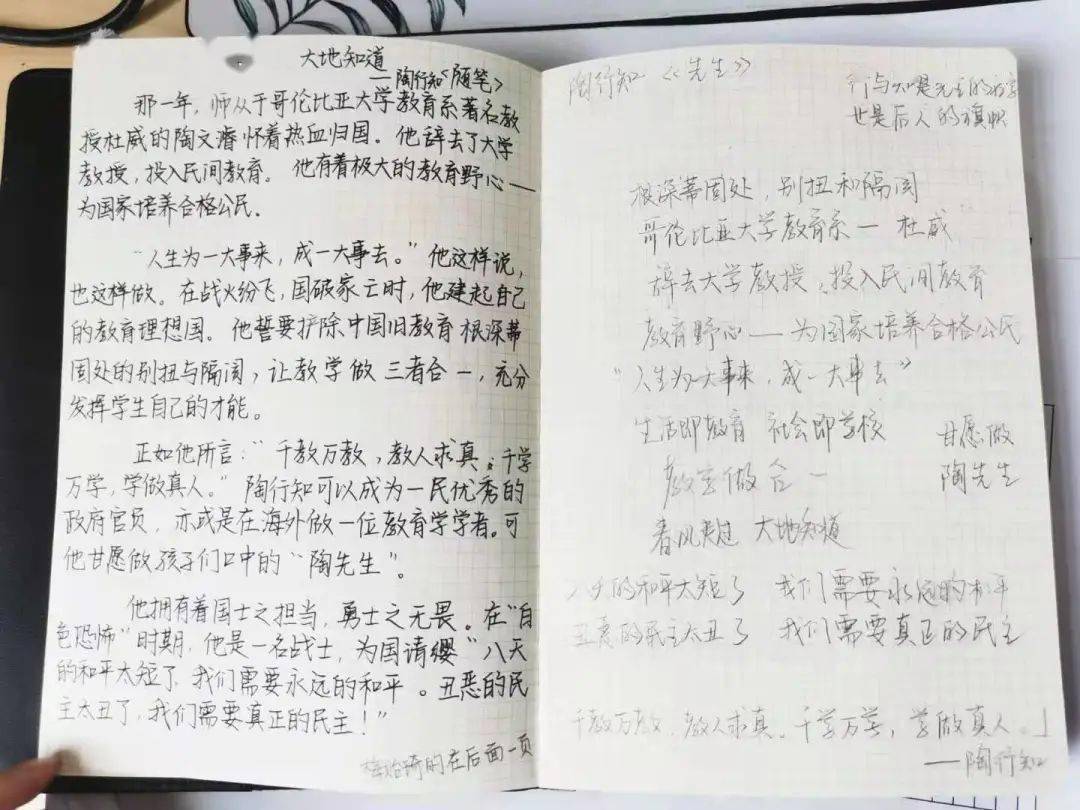 大地知道
—陶行知《随笔》
那一年，师从于哥伦比亚大学教育系著名教
授杜威的陶文濬怀着热血归国。他辞去了大学
教授，投入民间教育。他有着极大的教育野心——
为国家培养合格公民。
“人生为一大事来，成一大事去。”他这样说，
也这样做。在战火纷飞，国破家亡时，他建起自己
的教育理想国。他誓要扩除中国旧教育根深蒂
固处的别扭与隔阂，让教学做三者合一，充分
发挥学生自己的才能。
正如他所言：“千教万教，教人求真；千学
万学，学做真人。”陶行知可以成为一民优秀的
政府官员，亦或是在海外做一位教育学学者。可
他甘愿做孩子们口中的“陶先生”。
他拥有着国士之担当，勇士之无畏。在“白
色恐怖”时期，他是一名战士，为国请缨“八天
的和平太短了，我们需要永远的和平。丑恶的民
主太丑了，我们需要真正的民主！”
的在后面一页
陶行知《先生》
行与知是先生的
也是后人的旗帜
根深蒂固处，别扭和隔阂
哥伦比亚大学教育系— 杜威
辞去大学教授，投入民间教育
教育野心——为国家培养合格公民
“人生为一大事来，成一大事去”
生活即教育 社会即学校
甘愿做
陶先生
教学做合一
春风 大地知道
八天的和平太短了 我们需要永远的和平
丑恶的民主太丑了 我们需要真正的民主
千教万教，教人求真。千学万学，学做真人。」
——陶行知